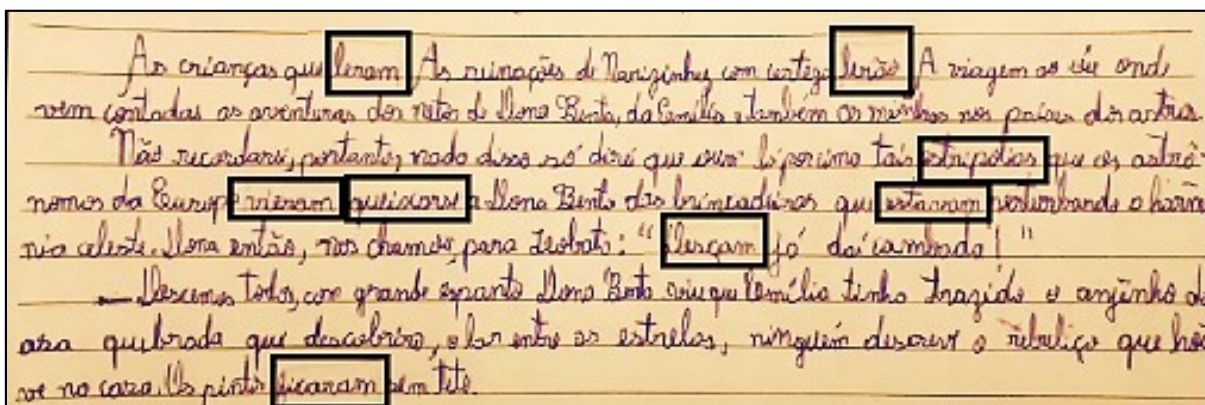 As crianças que leram As reinações de Narizinho, com certeza lerão A viagem ao céu onde
vem contadas as aventuras dos netos de Dona Benta, da Emília e também as minhas nos países dos astros.
Não recordarei, portanto, nada disso só direi que tais estripolias que os astrô-
nomos da Europa vieram queixarse a Dona Benta das brincadeiras que estavam perturbando a harmo
nia celeste. Dona então, nos chamou, para Teobato: "Desçam já daí cambada!"
— Descemos todos, com grande espanto Dona Benta viu que Emília tinha trazido o anjinho de
asa quebrada que descobrira, lá entre as estrelas, ninguém descreve o rebuliço que hou
ve na casa. Os pintos ficaram sem teto.